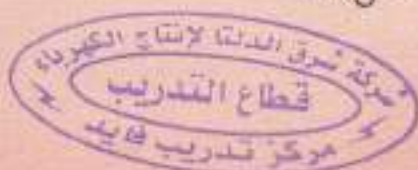 شركة شرق الدلتا لإنتاج الكهرباء
قطاع التدريب
مركز تدريب فايد